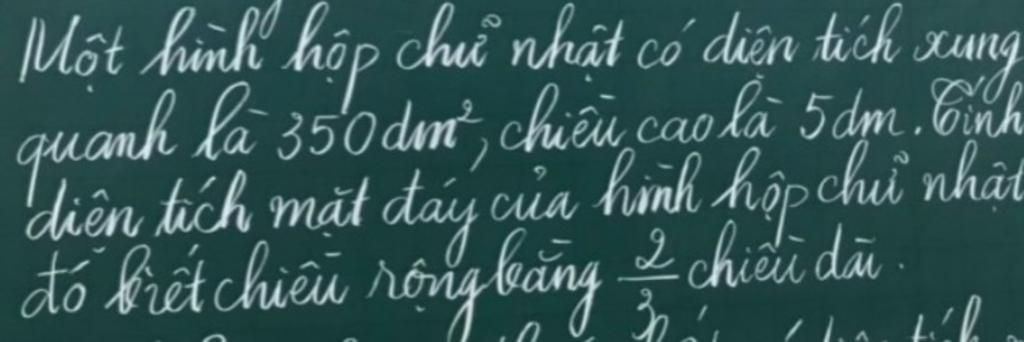 Một hình hộp chữ nhật có diện tích xung
quanh là 350dm², chiều cao là 5dm. Tính
diện tích mặt đáy của hình hộp chữ nhật
đó biết chiều rộng bằng 2/3 chiều dài.